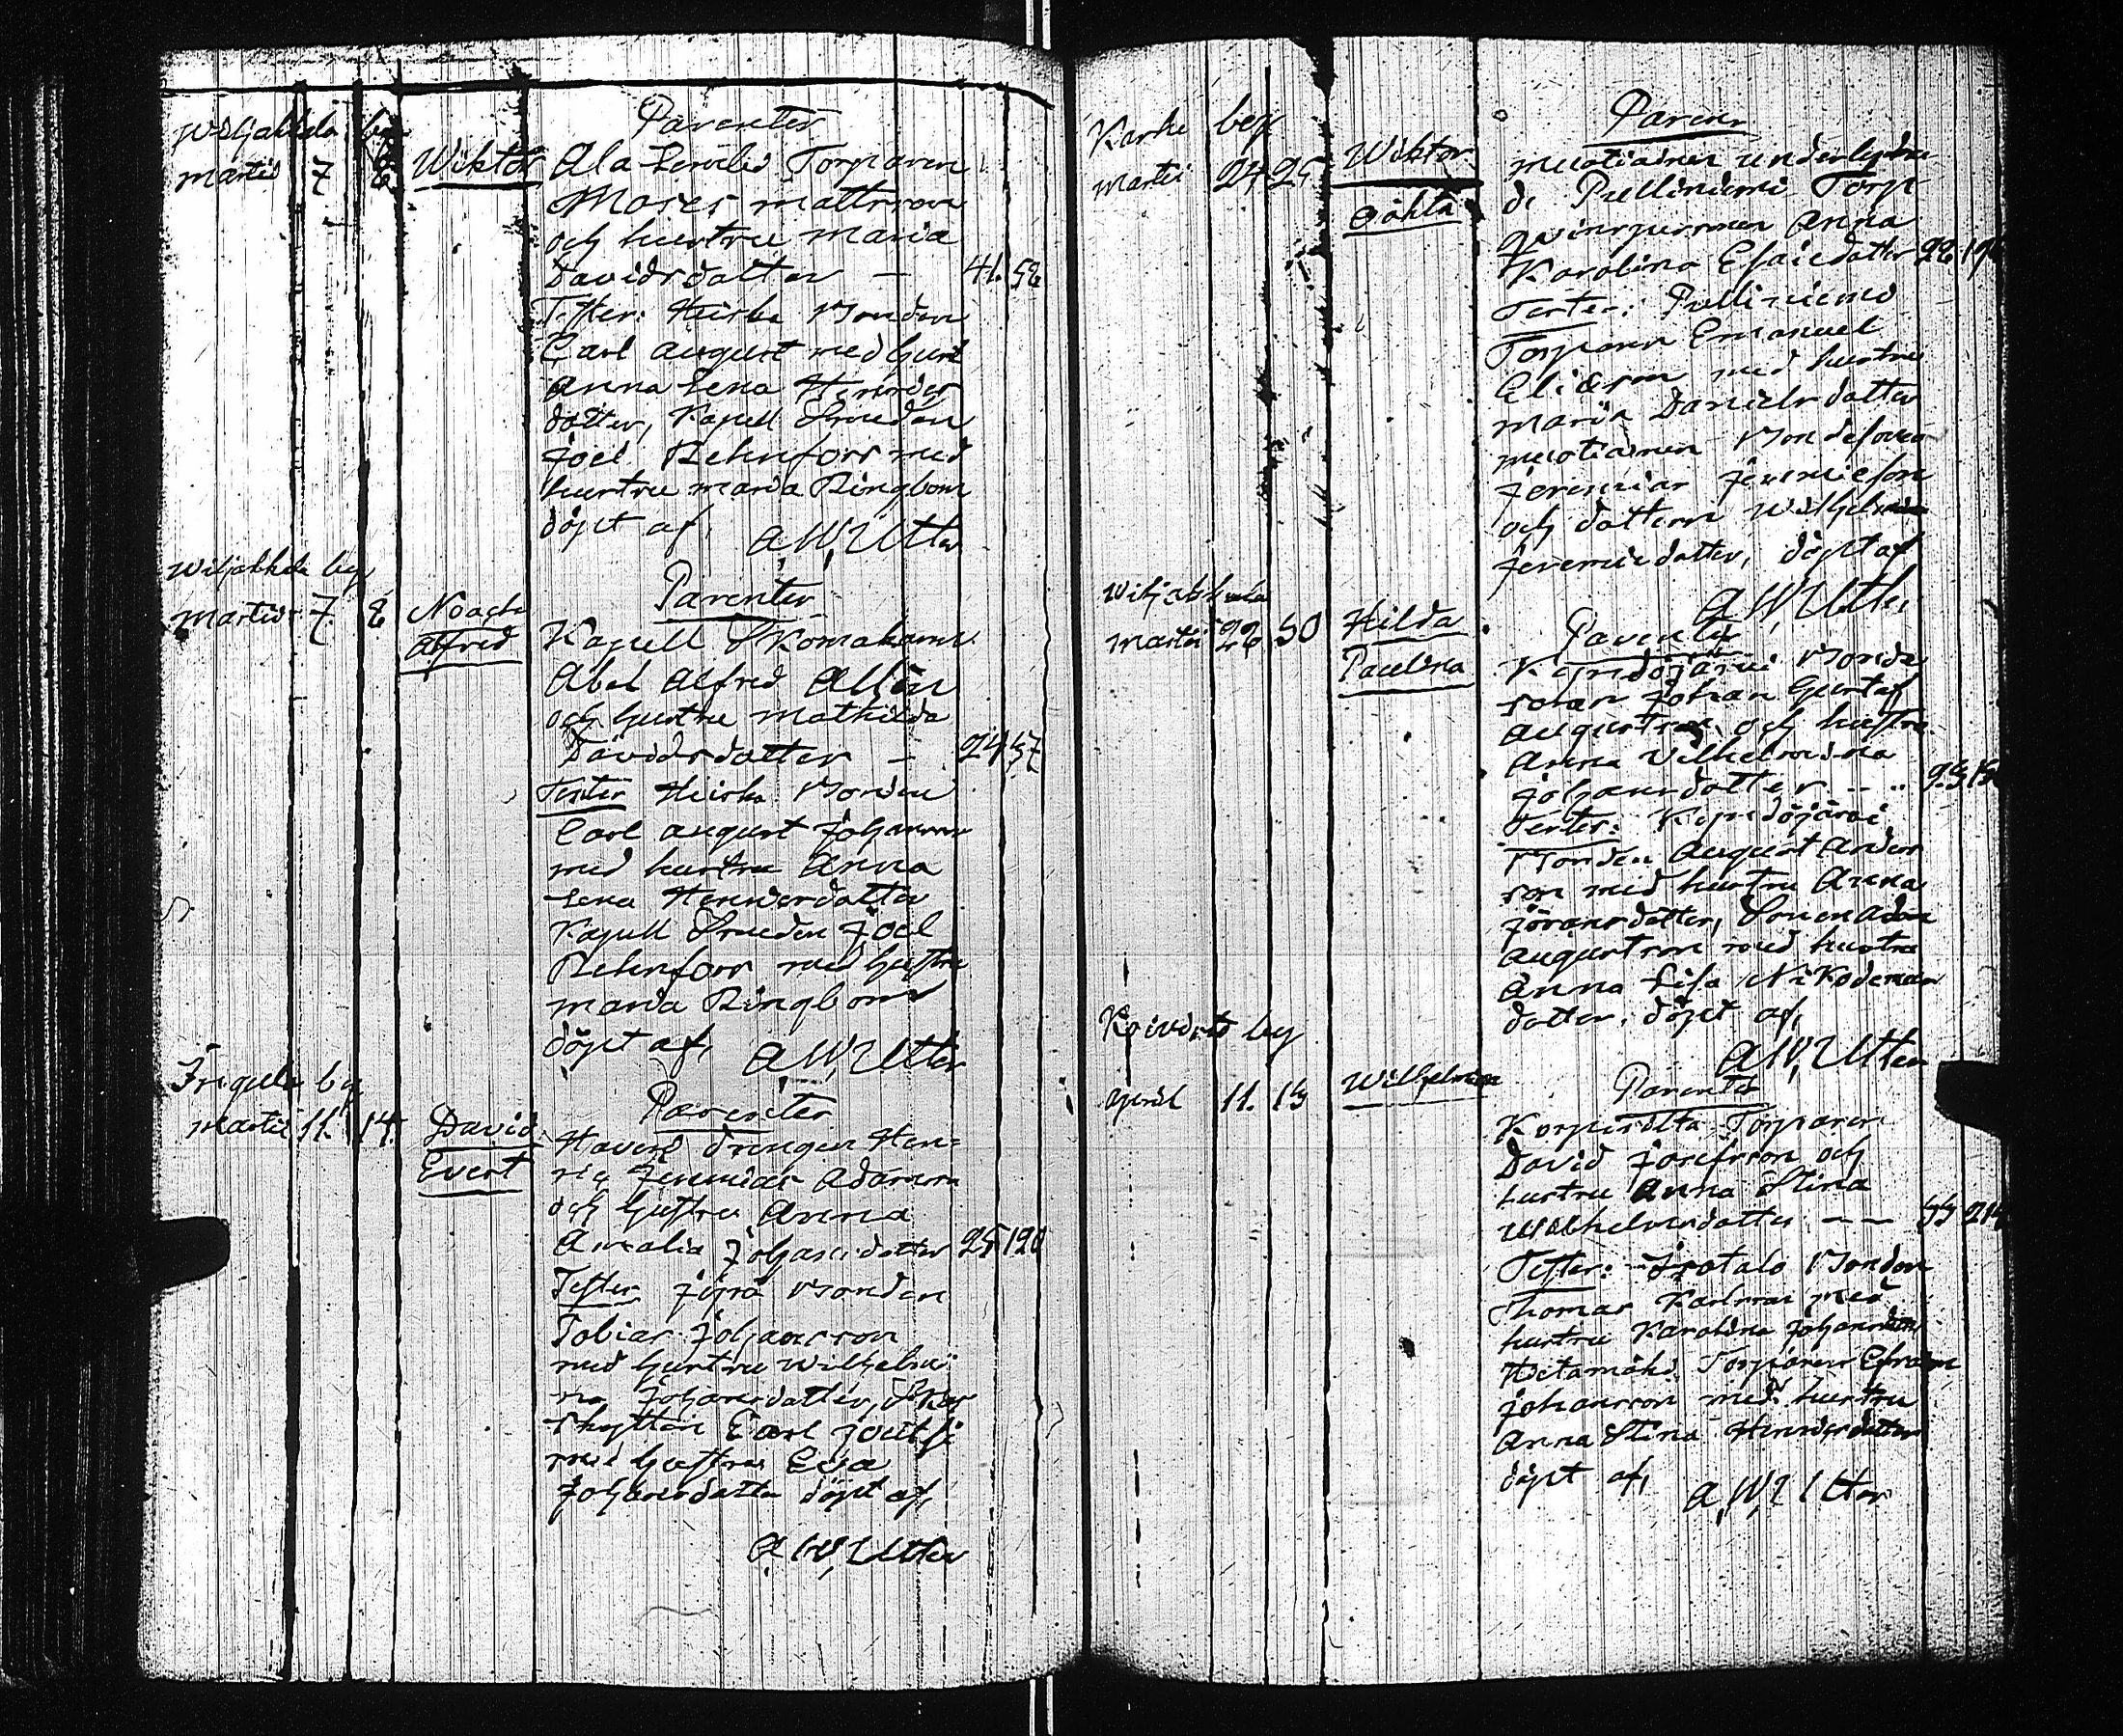 Wiljakkala by
Martii 7 8 Wiktor
Parenter
Ala Torparen
Moses Mattsson
och hustru Maria
Davidsdotter — 41. 52
Tester: Heiska Bonden
Carl August med hust
Anna Lena Henrics
dotter, Kapell Smeden
Joel Rehnfors med
hustru Maria Ringbom
döpt af, A, W, Utter
Wiljakkala by
Martii 7. 8 Noach
Alfred
Parenter
Kapell Skomakaren
Abel Alfred
och hustru Mathilda
Davidsdotter — 24 57
Tester Heiska Bonden
Carl August Johansson
med hustru Anna
Lena Henricsdotter
Kapell Smeden Joel
Rehnfors med hustru
Maria Ringbom
döpt af, A, W, Utter
by
Martii 11. 14. David
Evert
Parenter
drengen Hen=
ric Jeremias Adamsson
och hustru Anna
Amalia Johansdotter 25 120
Tester Bonden
Tobias Johansson
med hustru Wilhelmi
na Johansdotter,
Carl
med hustru Eva
Johansdotter döpt af,
A, W, Utter
Karhe by
Martii 24 25 Wiktor
Parens
underlydan
de Pulliniemi Torp
qvinspersonen Anna
Karolina Esaiedotter 22
Tester: Pulliniemi
Torparen Emanuel
Eliasson med hustru
Maria Danielsdotter
Bondesonen
Jeremias Jeremieson
och dottern Wilhelmina
Jeremiedotter, döpt af
A, W, Utter
Wiljakkala
Martii 30 Hilda
Paulina
Parenter
Bonde
sonen Johan Gustaf
Augustsson och hustru
Anna Vilhelmina
Johansdotter - - "
Tester:
Bonden August Anders
son med hustru Anna
Jöransdotter, Sonen Adam
Augustson med hustru
Anna Lisa Nikodemus
dotter, döpt af,
A, W, Utter
Koivisto by
April 11. 13 Wilhelmina
Parenter
Torparen
David Josefsson och
hustru Anna Stina
Wilhelmsdotter — —
Tester: Isotalo Bonden
Thomas Karlsson med
hustru Karolina Johansdotter
Torparen Efraim
Johansson med hustru
Anna Stina Henricsdotter
döpt af, A, W, Utter